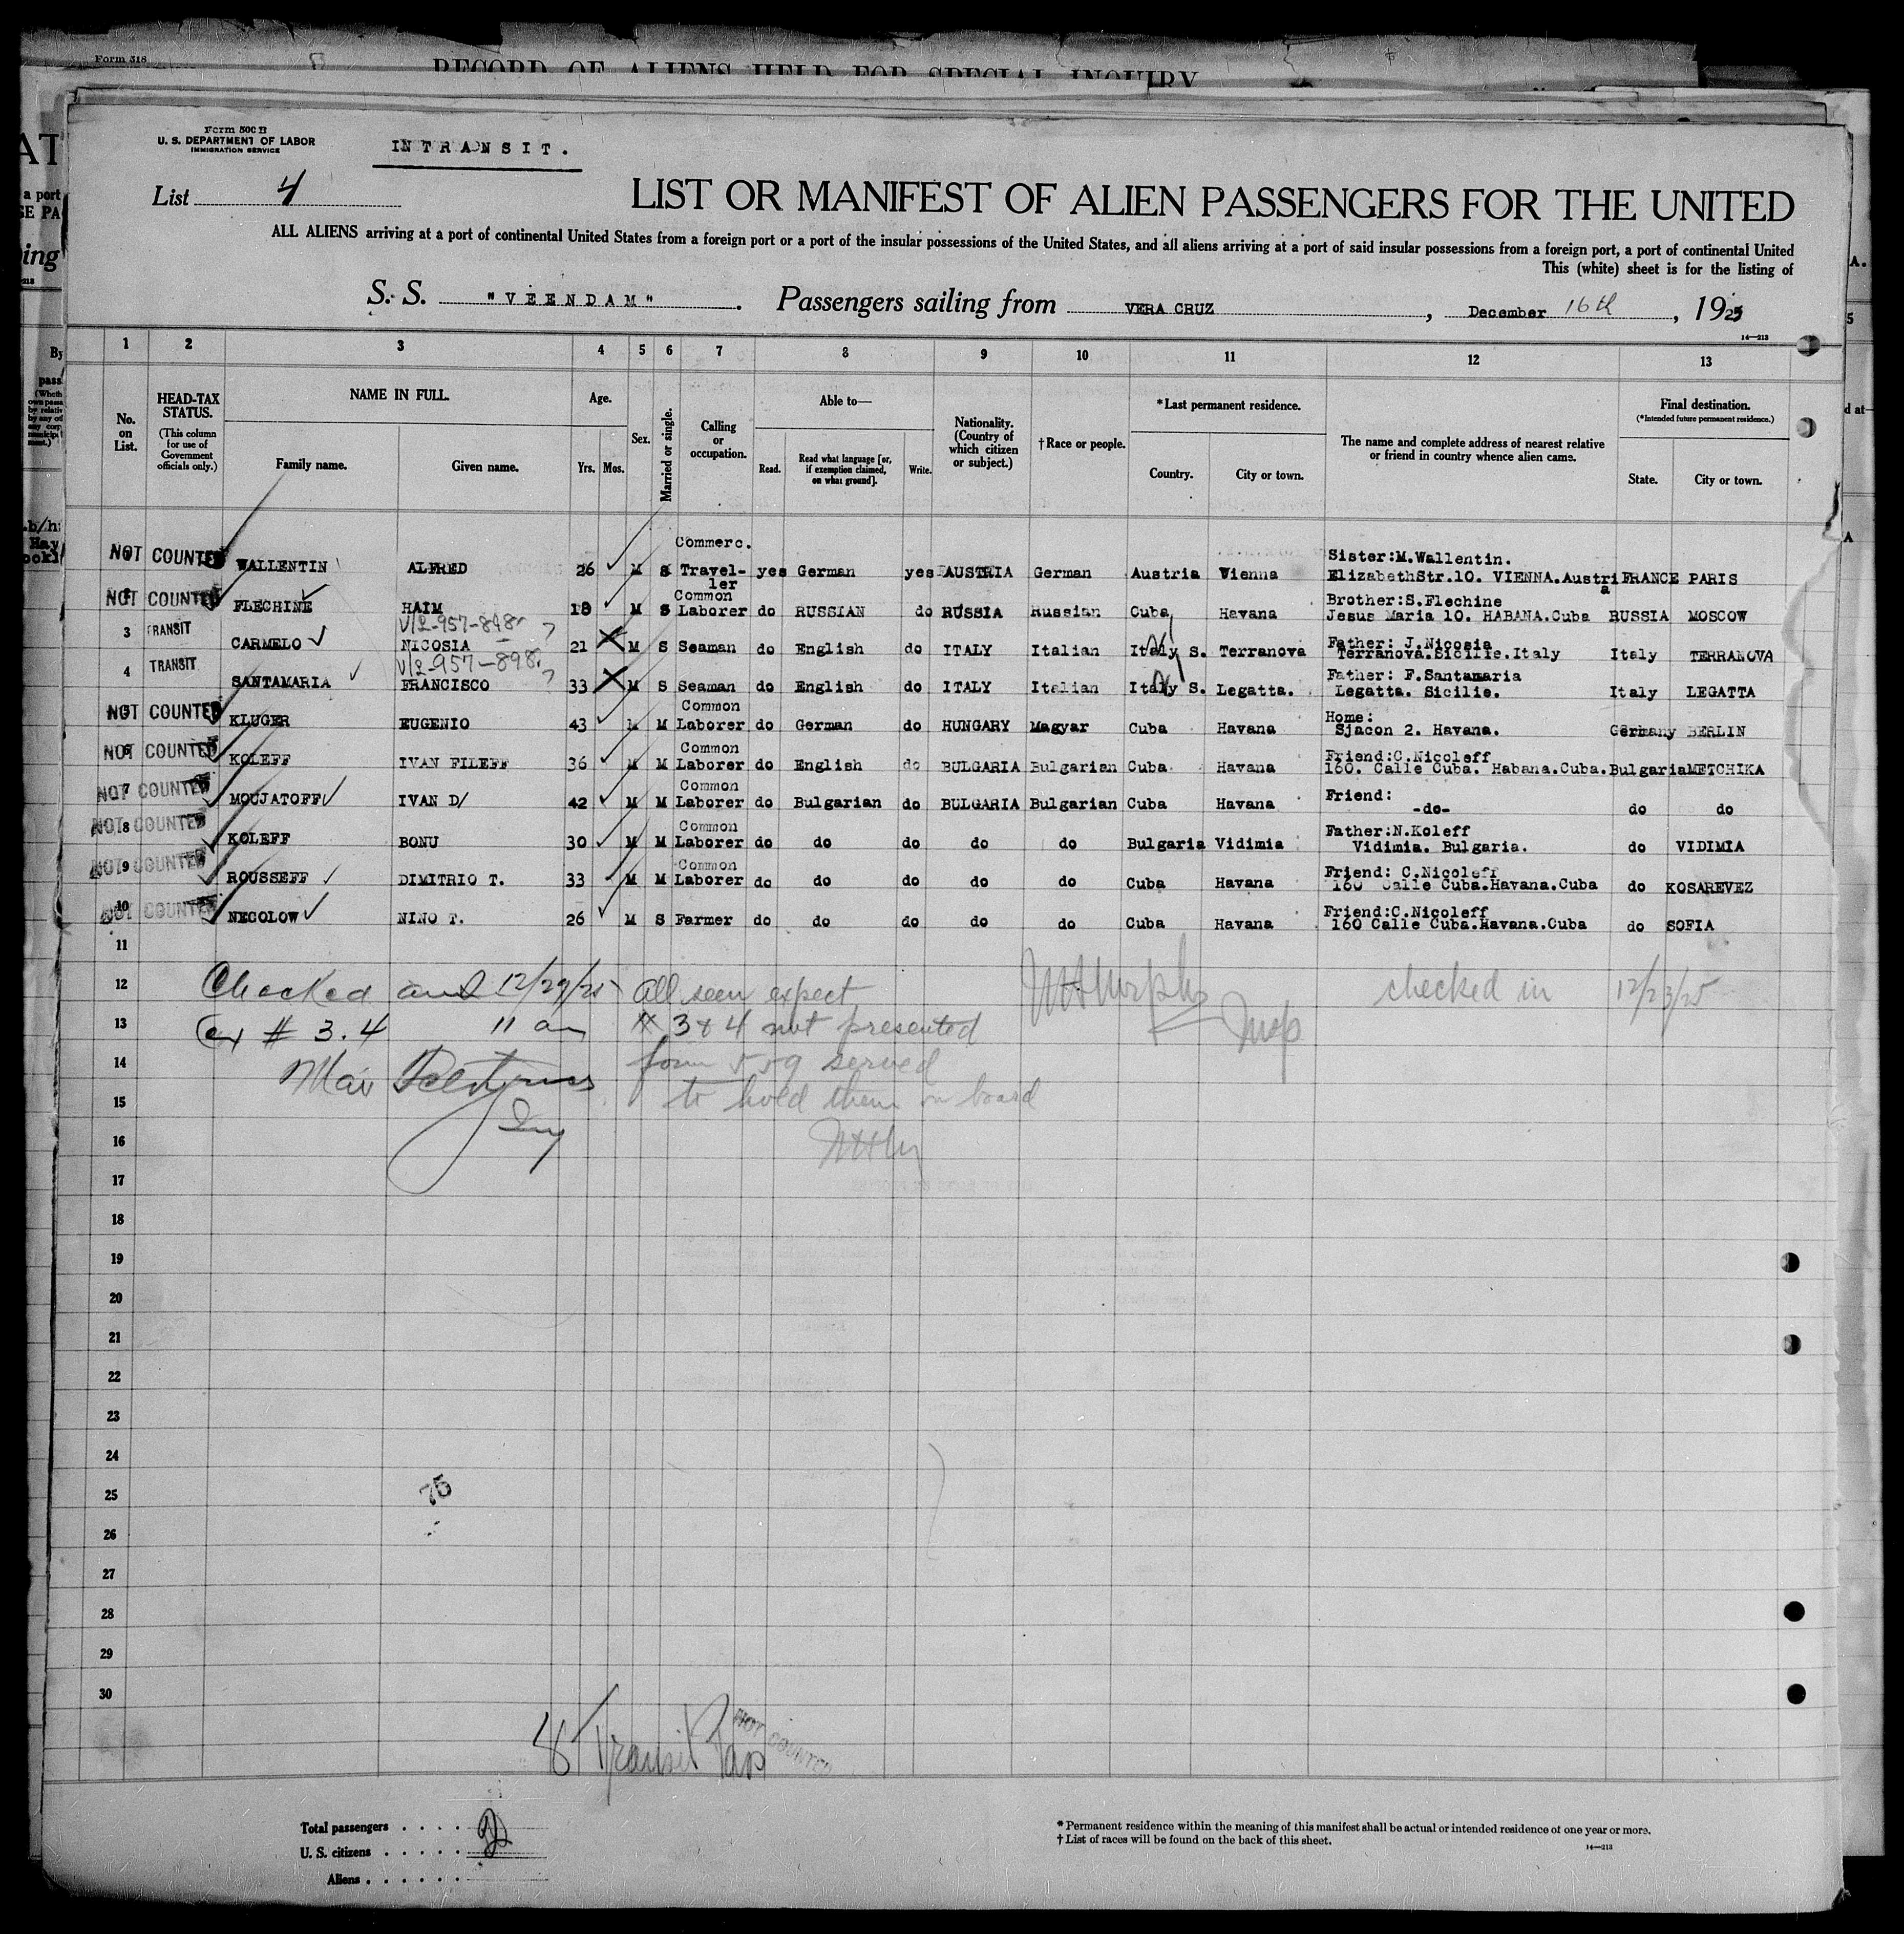 Form 518
RECORD OF ALIENS HELD FOR SPECIAL INQUIRY
Form 500 B
U. S. DEPARTMENT OF LABOR
IMMIGRATION SERVICE
IN TRANSIT.
List 4
LIST OR MANIFEST OF ALIEN PASSENGERS FOR THE UNITED
ALL ALIENS arriving at a port of continental United States from a foreign port or a port of the insular possessions of the United States, and all aliens arriving at a port of said insular possessions from a foreign port, a port of continental United
This (white) sheet is for the listing of
S. S. "VEENDAM". Passengers sailing from VERA CRUZ, December 16th, 1925
14—213
1 2 3 4 5 6 7 8 9 10 11 12 13
No. on List.
HEAD-TAX STATUS.
(This column for use of Government officials only.)
NAME IN FULL.
Family name. Given name.
Age.
Yrs. Mos.
Sex.
Married or single.
Calling or occupation.
Able to—
Read. Read what language [or, if exemption claimed, on what ground]. Write.
Nationality. (Country of which citizen or subject.)
†Race or people.
*Last permanent residence.
Country. City or town.
The name and complete address of nearest relative or friend in country whence alien came.
Final destination.
(*Intended future permanent residence.)
State. City or town.
Commerc. Sister:M.Wallentin.
NOT COUNTED WALLENTIN ALFRED 26 M S Travel-ler yes German yes AUSTRIA German Austria Vienna ElizabethStr.10. VIENNA.Austria FRANCE PARIS
Common Brother:S.Flechine
NOT COUNTED FLECHINE HAIM 18 M S Laborer do RUSSIAN do RUSSIA Russian Cuba Havana Jesus Maria 10. HABANA.Cuba RUSSIA MOSCOW
V/2-957-898 ?
Father: J.Nicosia
3 TRANSIT CARMELO NICOSIA 21 M S Seaman do English do ITALY Italian Italy S. Terranova Terranova.Sicilie.Italy Italy TERRANOVA
V/2-957-898 ?
Father: F.Santamaria
4 TRANSIT SANTAMARIA FRANCISCO 33 M S Seaman do English do ITALY Italian Italy S. Legatta. Legatta. Sicilie. Italy LEGATTA
Common Home:
5 NOT COUNTED KLUGER EUGENIO 43 M M Laborer do German do HUNGARY Magyar Cuba Havana Sjacon 2. Havana. Germany BERLIN
Common Friend:C.Nicoleff
6 NOT COUNTED KOLEFF IVAN FILEFF 36 M M Laborer do English do BULGARIA Bulgarian Cuba Havana 160. Calle Cuba. Habana.Cuba. Bulgaria METCHIKA
Common Friend:
7 NOT COUNTED MOUJATOFF IVAN D/ 42 M M Laborer do Bulgarian do BULGARIA Bulgarian Cuba Havana -do- do do
Common Father:N.Koleff
8 NOT COUNTED KOLEFF BONU 30 M M Laborer do do do do do Bulgaria Vidimia Vidimia. Bulgaria. do VIDIMIA
Common Friend: C.Nicoleff
9 NOT COUNTED ROUSSEFF DIMITRIO T. 33 M M Laborer do do do do do Cuba Havana 160 Calle Cuba.Havana.Cuba do KOSAREVEZ
Friend:C.Nicoleff
10 NOT COUNTED NECOLOW NINO T. 26 M S Farmer do do do do do Cuba Havana 160 Calle Cuba.Havana.Cuba do SOFIA
11
12 Checked and 12/29/25 all seen expect checked in 12/23/25
13 ex # 3.4 11 am # 3 & 4 not presented
14 form 559 served
15 to hold them on board
16
17
18
19
20
21
22
23
24
25
75
26
27
28
29
30
8 Transit Pass
NOT COUNTED
Total passengers
U. S. citizens
Aliens
*Permanent residence within the meaning of this manifest shall be actual or intended residence of one year or more.
†List of races will be found on the back of this sheet.
14—213